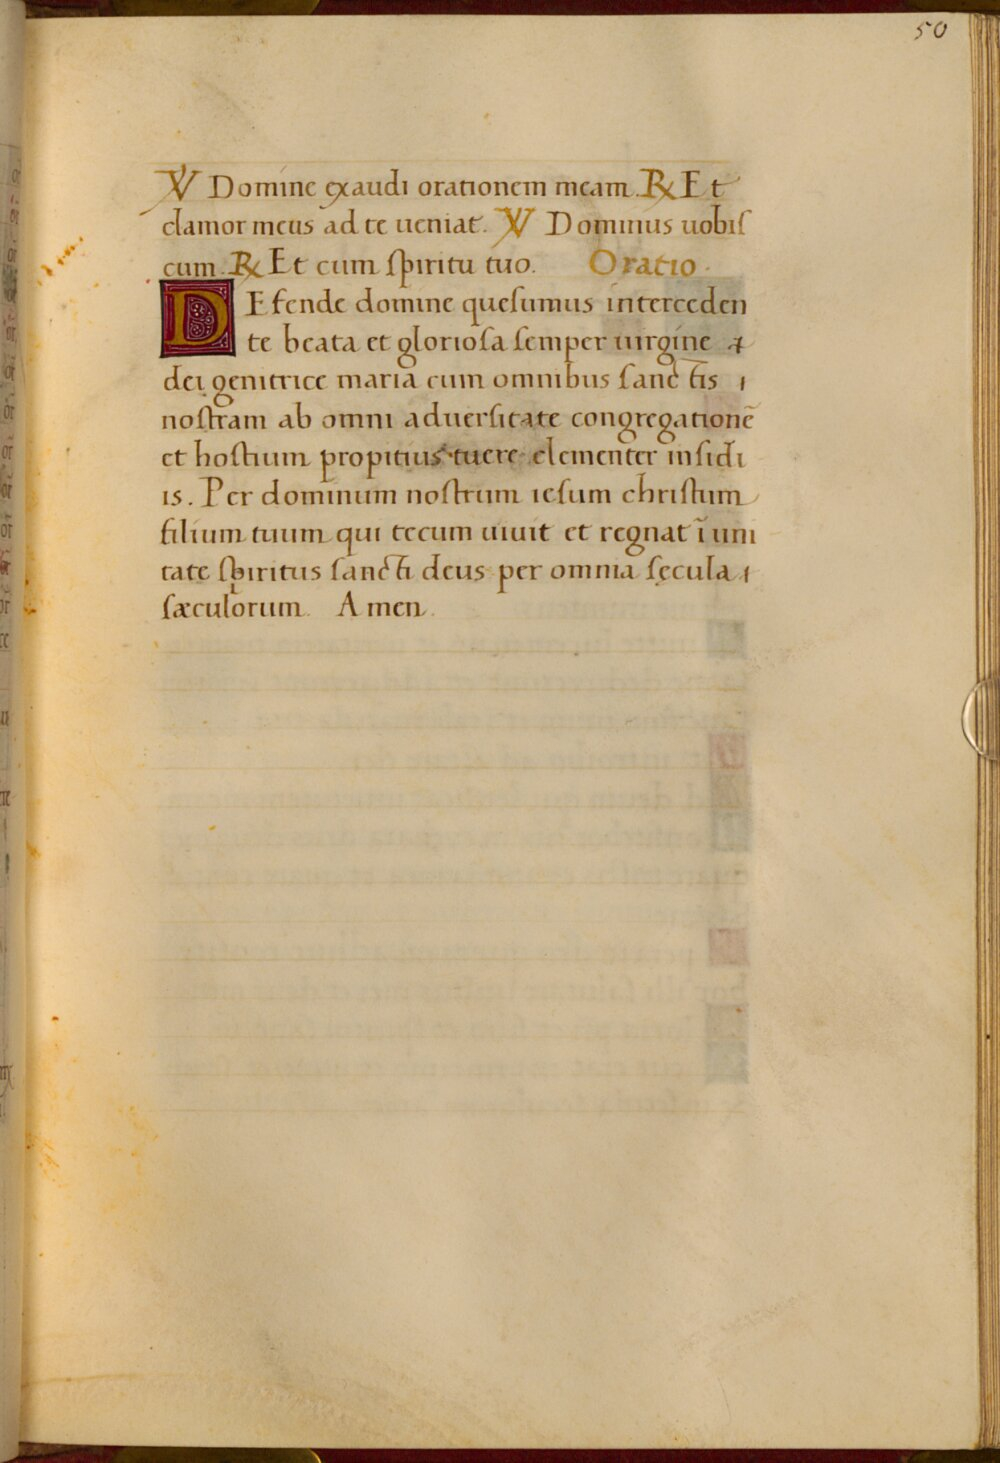 50
℣ Domine exaudi orationem meam. ℟ Et
clamor meus ad te ueniat. ℣ Dominus uobiſ
cum. ℟ Et cum ſpiritu tuo. Oratio.
DEfende domine queſumus interceden
te beata et glorioſa ſemper uirgine
dei genitrice maria cum omnibus ſanctis
noſtram ab omni aduerſitate congregationē
et hoſtium propitius tuere clementer inſidi
is. Per dominum noſtrum ieſum chriſtum
filium tuum qui tecum uiuit et regnat ī uni
tate ſpiritus ſancti deus per omnia ſęcula
ſæculorum. Amen.